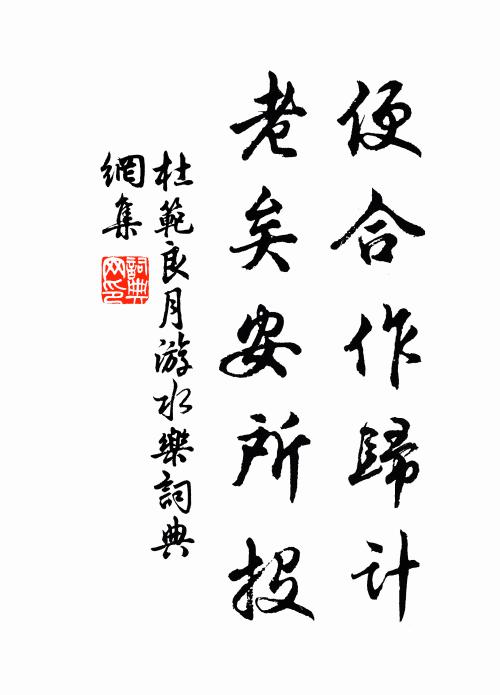 便合作歸計
老矣安所投
杜範良月游水樂詞典
網集
詞典網印